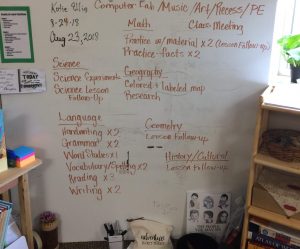 Computer Lab/Music/Art/Recess/PE
8-29-18
Aug 23, 2018
Math
Class Meeting
Practice w/material x2 (Lesson Follow-up)
Practice-facts x2
Science
Science Experiment
Science Lesson
Follow-Up
Geography
Colored + labeled map
Research
Language
Handwriting x2
Grammar x2
Word Study x1
Vocabulary/Spelling x2
Reading x2
Writing x2
Geometry
Lesson Follow-up
History/Cultural
Lesson Follow-up
TODAY
adventure